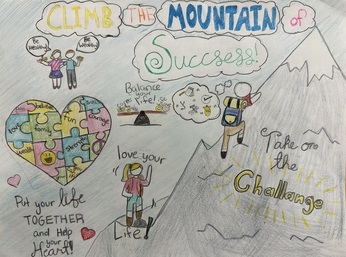 CLIMB THE MOUNTAIN of
Succsess!
Be
Healthy!
Be
Wealthy!
Balance
your
life!
love
family
fun
courage
love your
Life!
Take on
the
Challange
Put your life
TOGETHER
and Help
your
Heart!